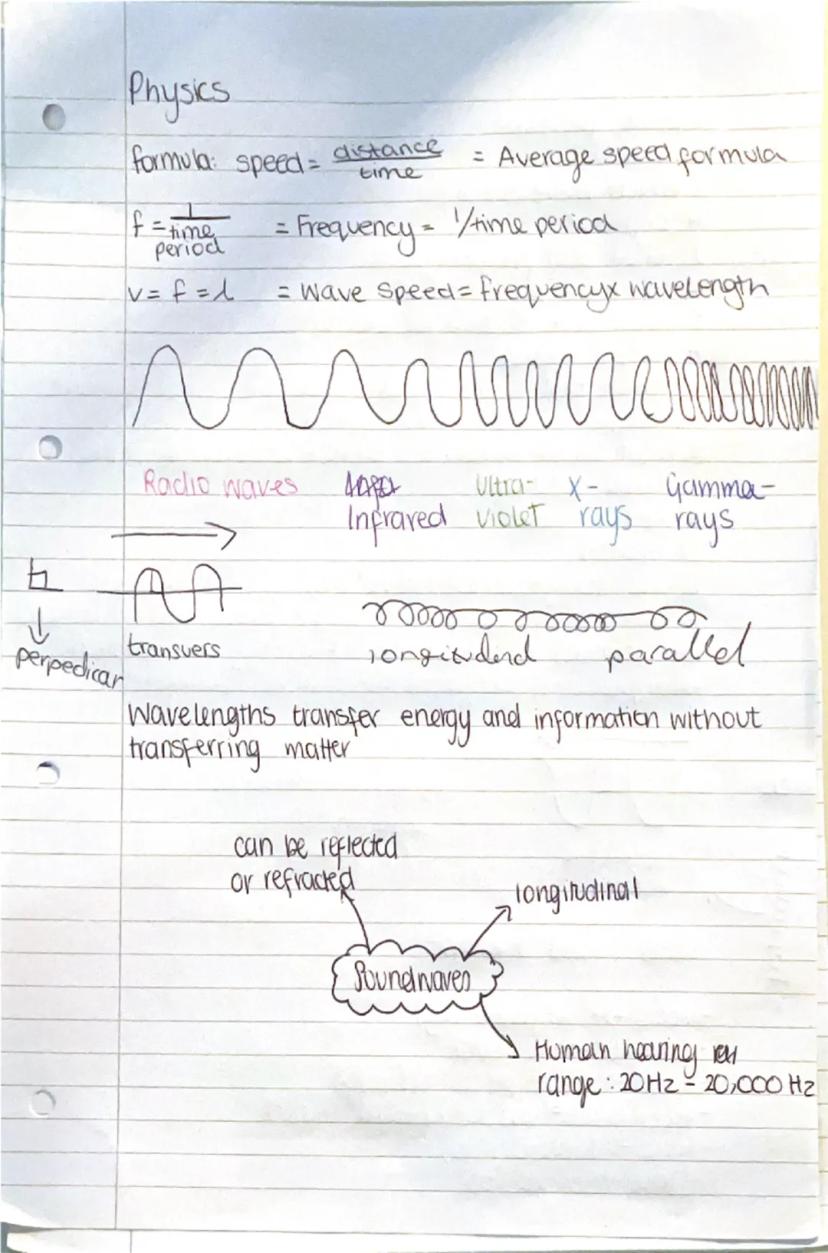 Physics
formula: speed = distance/time = Average speed formula
f = 1/time period = Frequency = 1/time period
v = f = λ = Wave speed = frequency x wavelength
Radio waves Infrared Ultra-violet X-rays Gamma-rays
transvers
perpedicar
longitudend parallel
Wavelengths transfer energy and information without
transferring matter
can be reflected
or refracted
longitudinal
Soundwaves
Human hearing
range: 20Hz - 20,000 Hz